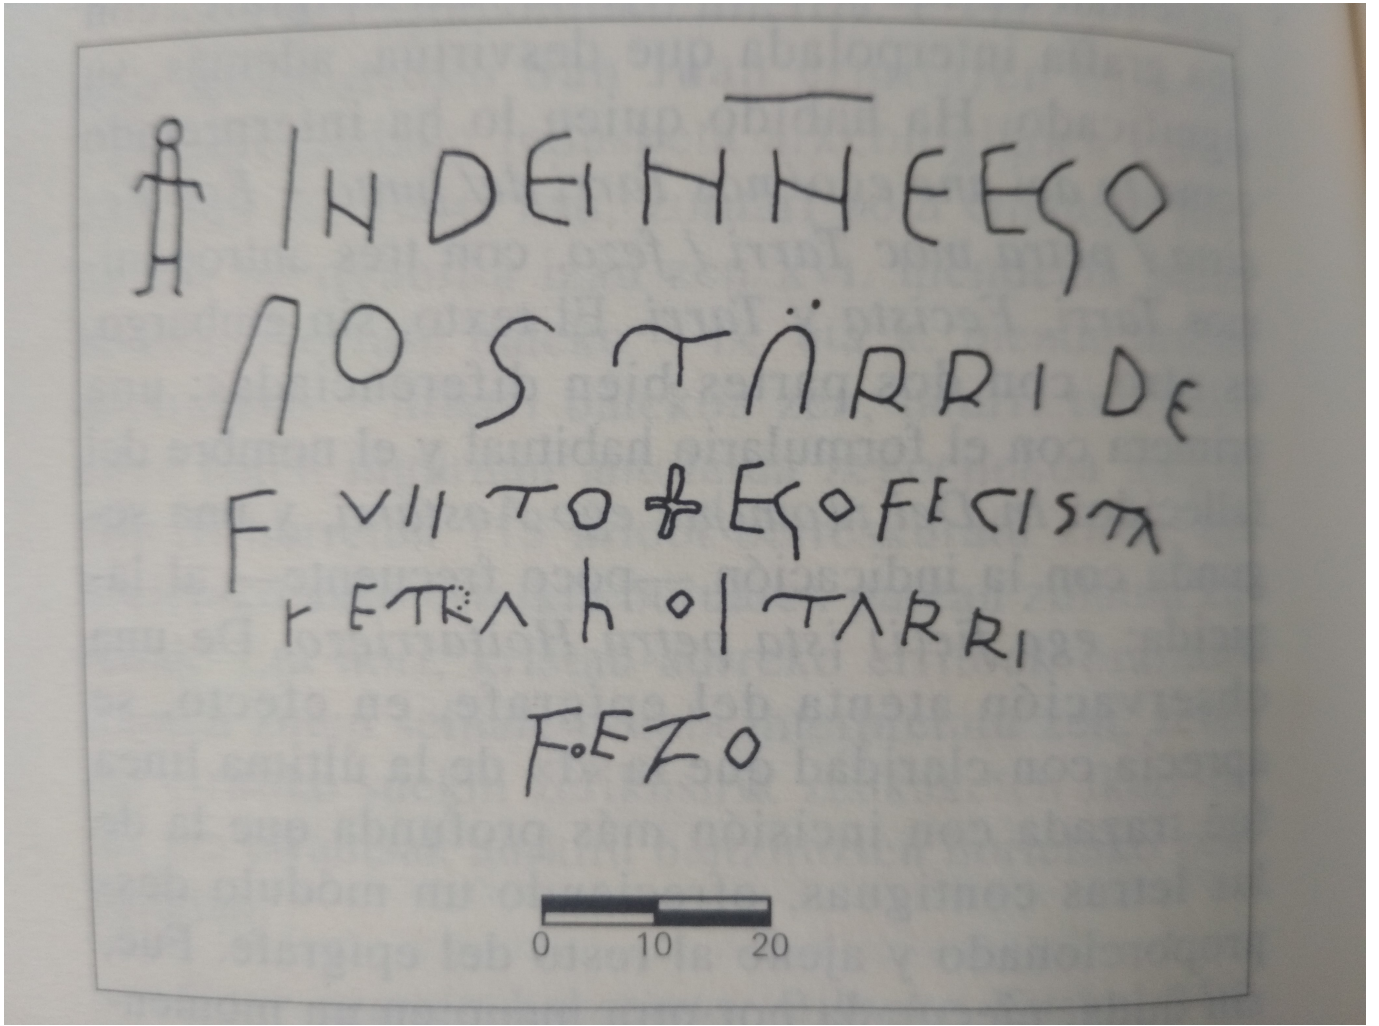 INDEINNEEGO
AOSTARRIDE
FVIITO+EGOFECISTA
PETRAhOITARRI
FEZO
0 10 20